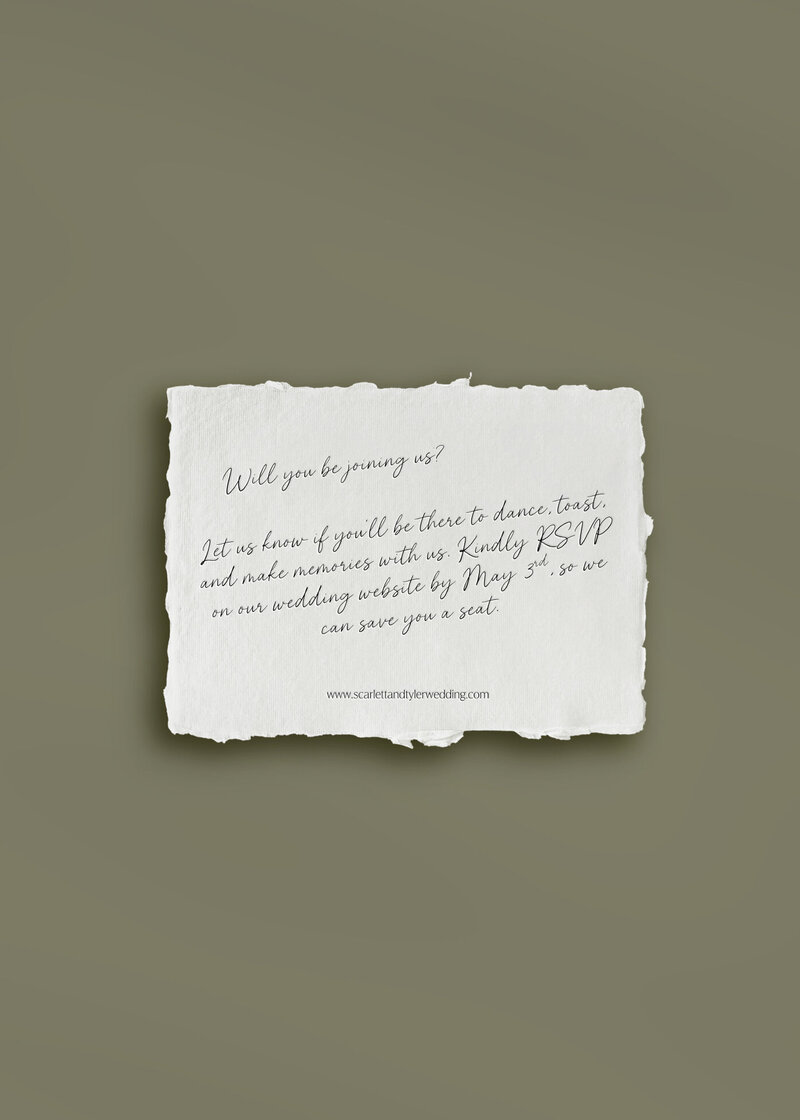 Will you be joining us?
Let us know if you'll be there to dance, toast,
and make memories with us. Kindly RSVP
on our wedding website by May 3rd, so we
can save you a seat.
www.scarlettandtylerwedding.com